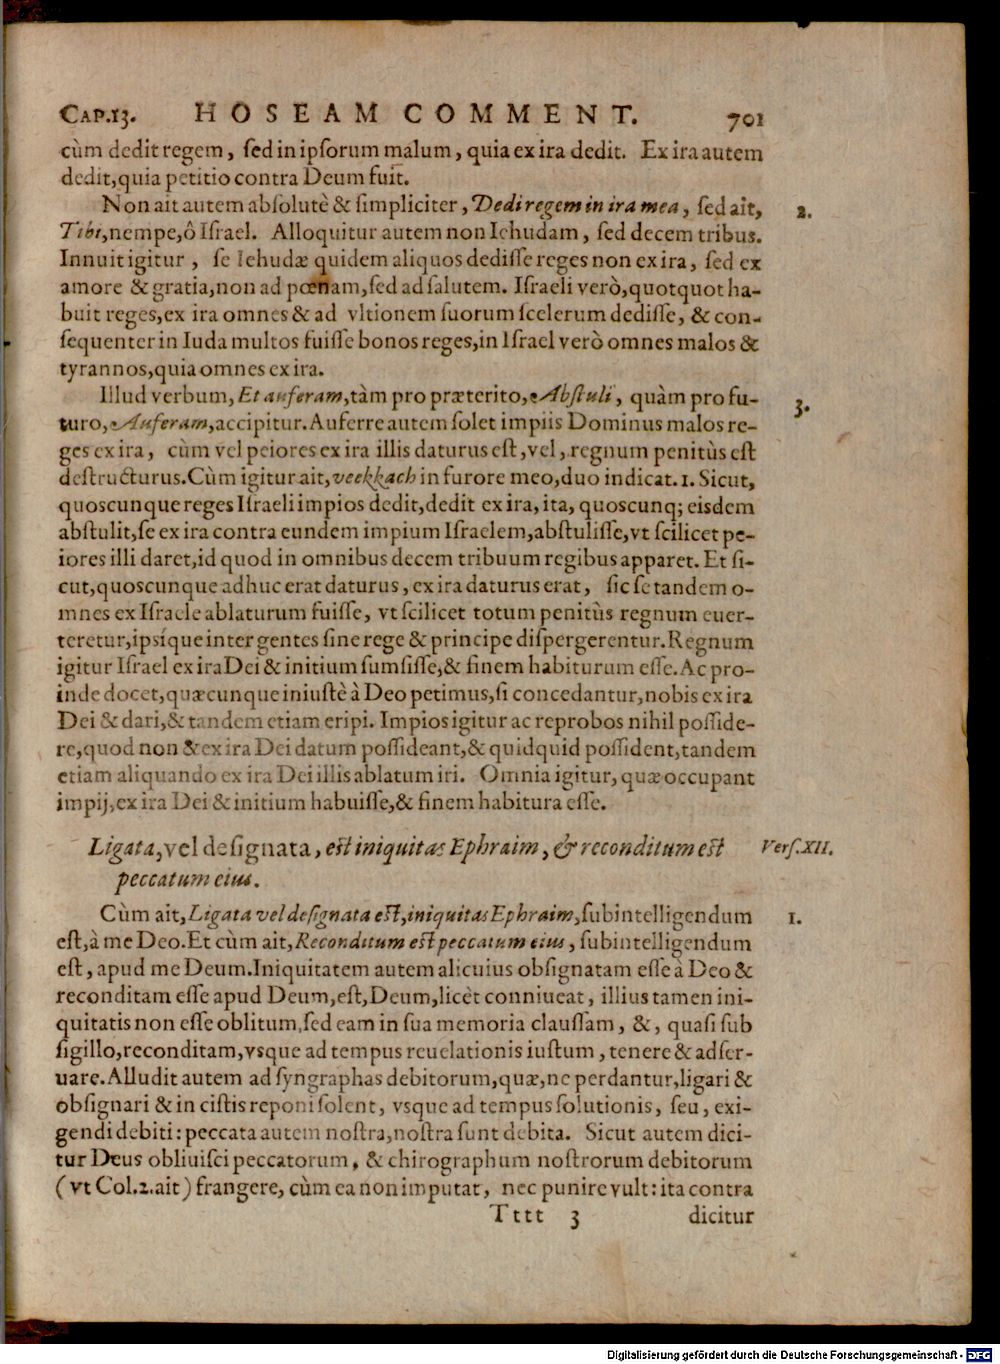 CAP.13. HOSEAM COMMENT. 701
cùm dedit regem, ſed in ipſorum malum, quia ex ira dedit. Ex ira autem
dedit, quia petitio contra Deum fuit.
Non ait autem abſolutè & ſimpliciter, Dedi regem in ira mea, ſed ait, 2.
Tibi, nempe, ô Iſrael. Alloquitur autem non Iehudam, ſed decem tribus.
Innuit igitur, ſe Iehudæ quidem aliquos dediſſe reges non ex ira, ſed ex
amore & gratia, non ad pœnam, ſed ad ſalutem. Iſraeli verò, quotquot ha-
buit reges, ex ira omnes & ad vltionem ſuorum ſcelerum dediſſe, & con-
ſequenter in Iuda multos fuiſſe bonos reges, in Iſrael verò omnes malos &
tyrannos, quia omnes ex ira.
Illud verbum, Et auferam, tàm pro præterito, Abſtuli, quàm pro fu- 3.
turo, Auferam, accipitur. Auferre autem ſolet impiis Dominus malos re-
ges ex ira, cùm vel peiores ex ira illis daturus eſt, vel, regnum penitùs eſt
deſtructurus. Cùm igitur ait, veekkach in furore meo, duo indicat. 1. Sicut,
quoscunque reges Iſraeli impios dedit, dedit ex ira, ita, quoscunq; eisdem
abſtulit, ſe ex ira contra eundem impium Iſraelem, abſtuliſſe, vt ſcilicet pe-
iores illi daret, id quod in omnibus decem tribuum regibus apparet. Et ſi-
cut, quoscunque adhuc erat daturus, ex ira daturus erat, ſic ſe tandem o-
mnes ex Iſraele ablaturum fuiſſe, vt ſcilicet totum penitùs regnum euer-
teretur, ipſíque inter gentes ſine rege & principe diſpergerentur. Regnum
igitur Iſrael ex ira Dei & initium ſumſiſſe, & finem habiturum eſſe. Ac pro-
inde docet, quæcunque iniuſtè à Deo petimus, ſi concedantur, nobis ex ira
Dei & dari, & tandem etiam eripi. Impios igitur ac reprobos nihil poſſide-
re, quod non & ex ira Dei datum poſſideant, & quidquid poſſident, tandem
etiam aliquando ex ira Dei illis ablatum iri. Omnia igitur, quæ occupant
impij, ex ira Dei & initium habuiſſe, & finem habitura eſſe.
Ligata, vel deſignata, eſt iniquitas Ephraim, & reconditum eſt Verſ. XII.
peccatum eius.
Cùm ait, Ligata vel deſignata eſt, iniquitas Ephraim, ſubintelligendum 1.
eſt, à me Deo. Et cùm ait, Reconditum eſt peccatum eius, ſubintelligendum
eſt, apud me Deum. Iniquitatem autem alicuius obſignatam eſſe à Deo &
reconditam eſſe apud Deum, eſt, Deum, licèt conniueat, illius tamen ini-
quitatis non eſſe oblitum, ſed eam in ſua memoria clauſſam, &, quaſi ſub
ſigillo, reconditam, vsque ad tempus reuelationis iuſtum, tenere & adſer-
uare. Alludit autem ad ſyngraphas debitorum, quæ, ne perdantur, ligari &
obſignari & in ciſtis reponi ſolent, vsque ad tempus ſolutionis, ſeu, exi-
gendi debiti: peccata autem noſtra, noſtra ſunt debita. Sicut autem dici-
tur Deus obliuiſci peccatorum, & chirographum noſtrorum debitorum
(vt Col. 2. ait) frangere, cùm ea non imputat, nec punire vult: ita contra
Tttt 3 dicitur
Digitalisierung gefördert durch die Deutsche Forschungsgemeinschaft - DFG